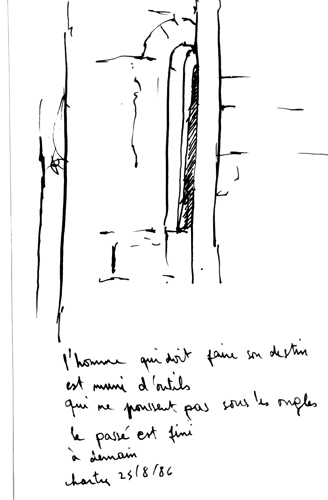 l'homme qui doit faire son destin
est muni d'outils
qui ne poussent pas sous les ongles
le passé est fini
à demain
25/8/86